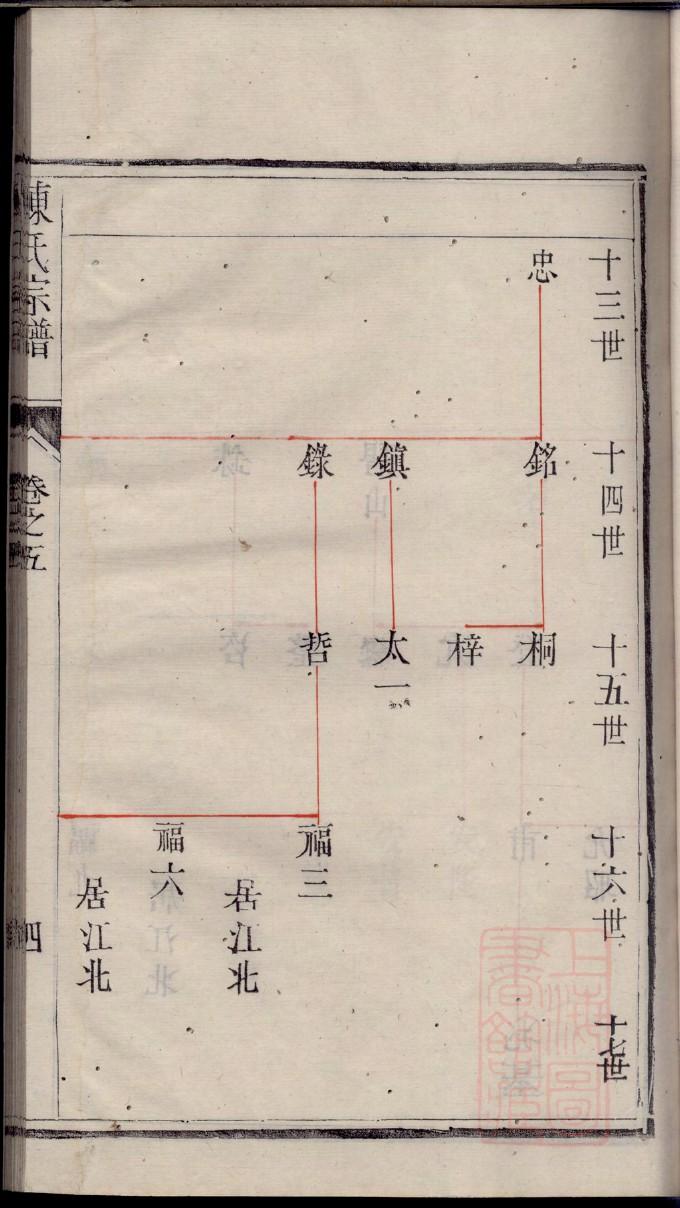 十三世
十四世
十五世
十六世
十七世
忠
銘
桐
梓
鎮
太一
錄
哲
福三
居江北
福六
居江北
陳氏宗譜
卷之五
四